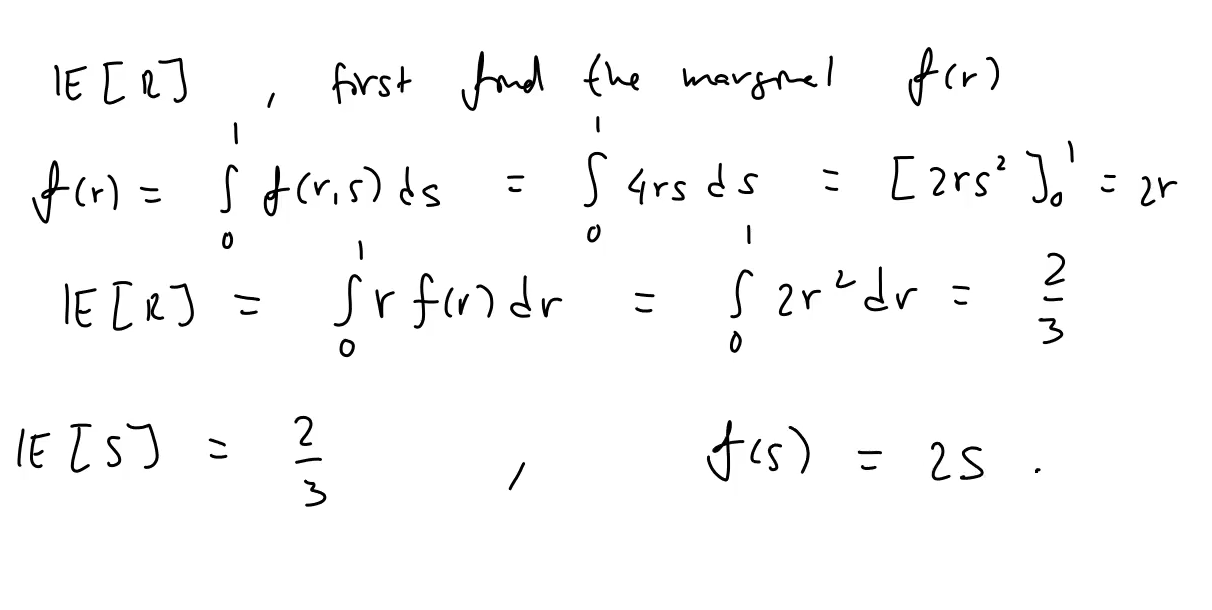 𝔼[R] , first find the marginal f(r)
f(r) = ∫₀¹ f(r,s) ds = ∫₀¹ 4rs ds = [2rs²]₀¹ = 2r
𝔼[R] = ∫₀¹ r f(r) dr = ∫₀¹ 2r² dr = 2/3
𝔼[S] = 2/3 , f(s) = 2s .